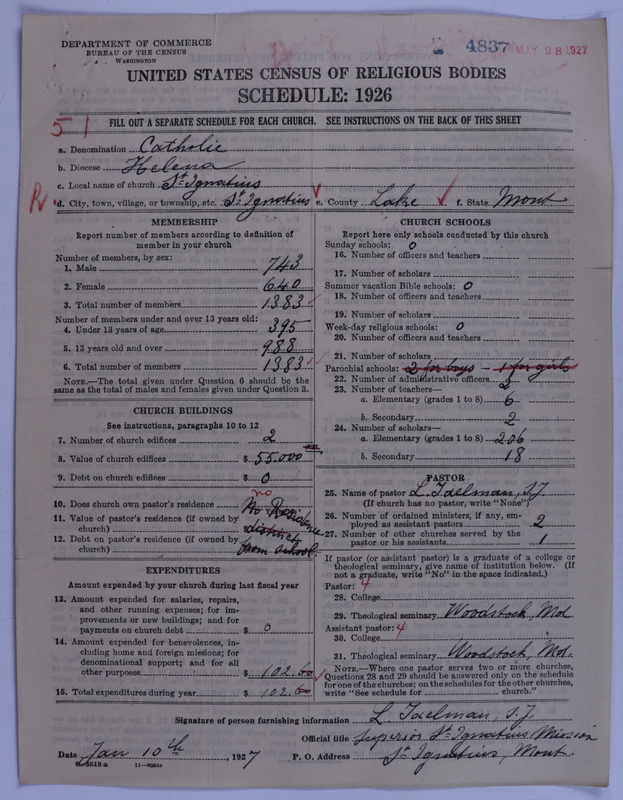 DEPARTMENT OF COMMERCE
BUREAU OF THE CENSUS
WASHINGTON
4837 MAY 28 1927
UNITED STATES CENSUS OF RELIGIOUS BODIES
SCHEDULE: 1926
51
FILL OUT A SEPARATE SCHEDULE FOR EACH CHURCH. SEE INSTRUCTIONS ON THE BACK OF THIS SHEET
a. Denomination Catholic
b. Diocese Helena
c. Local name of church St. Ignatius
R d. City, town, village, or township, etc. St. Ignatius e. County Lake f. State Mont
MEMBERSHIP
Report number of members according to definition of
member in your church
Number of members, by sex:
1. Male 743
2. Female 640
3. Total number of members 1383
Number of members under and over 13 years old:
4. Under 13 years of age 395
5. 13 years old and over 988
6. Total number of members 1383
NOTE.—The total given under Question 6 should be the
same as the total of males and females given under Question 3.
CHURCH BUILDINGS
See instructions, paragraphs 10 to 12
7. Number of church edifices 2
8. Value of church edifices $ 55.000
9. Debt on church edifices $ 0
no
10. Does church own pastor's residence No Residence
11. Value of pastor's residence (if owned by
church) distinct
12. Debt on pastor's residence (if owned by
church) from school
EXPENDITURES
Amount expended by your church during last fiscal year
13. Amount expended for salaries, repairs,
and other running expenses; for im-
provements or new buildings; and for
payments on church debt $ 0
14. Amount expended for benevolences, in-
cluding home and foreign missions; for
denominational support; and for all
other purposes $ 102.60
15. Total expenditures during year $ 102.60
CHURCH SCHOOLS
Report here only schools conducted by this church
Sunday schools: 0
16. Number of officers and teachers
17. Number of scholars
Summer vacation Bible schools: 0
18. Number of officers and teachers
19. Number of scholars
Week-day religious schools: 0
20. Number of officers and teachers
21. Number of scholars
Parochial schools: 2 for boys – 1 for girls
22. Number of administrative officers
23. Number of teachers— 2
a. Elementary (grades 1 to 8) 6
b. Secondary 2
24. Number of scholars—
a. Elementary (grades 1 to 8) 206
b. Secondary 18
PASTOR
25. Name of pastor L. Taelman, S.J.
(If church has no pastor, write "None")
26. Number of ordained ministers, if any, em-
ployed as assistant pastors 2
27. Number of other churches served by the
pastor or his assistants 1
If pastor (or assistant pastor) is a graduate of a college or
theological seminary, give name of institution below. (If
not a graduate, write "No" in the space indicated.)
Pastor: 4
28. College
29. Theological seminary Woodstock, Md
Assistant pastor: 4
30. College
31. Theological seminary Woodstock, Md.
NOTE.—Where one pastor serves two or more churches,
Questions 28 and 29 should be answered only on the schedule
for one of the churches; on the schedules for the other churches,
write "See schedule for church."
Signature of person furnishing information L. Taelman, S.J.
Official title Superior St. Ignatius Mission
Date Jan 10th, 1927 P. O. Address St. Ignatius, Mont.
8-5518a 11-9354